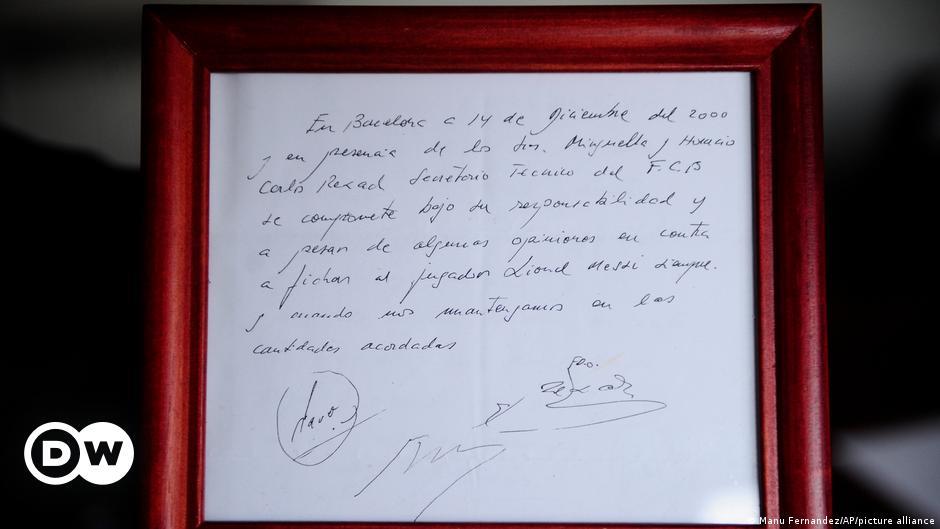 En Barcelona a 14 de Diciembre del 2000
y en presencia de los Srs. Minguella y Horacio
Carlos Rexach Secretario Tecnico del F.C.B
se compromete bajo su responsabilidad y
a pesar de algunas opiniones en contra
a fichar al jugador Lionel Messi siempre
y cuando nos mantengamos en las
cantidades acordadas
Fdo.
DW
Manu Fernandez/AP/picture alliance